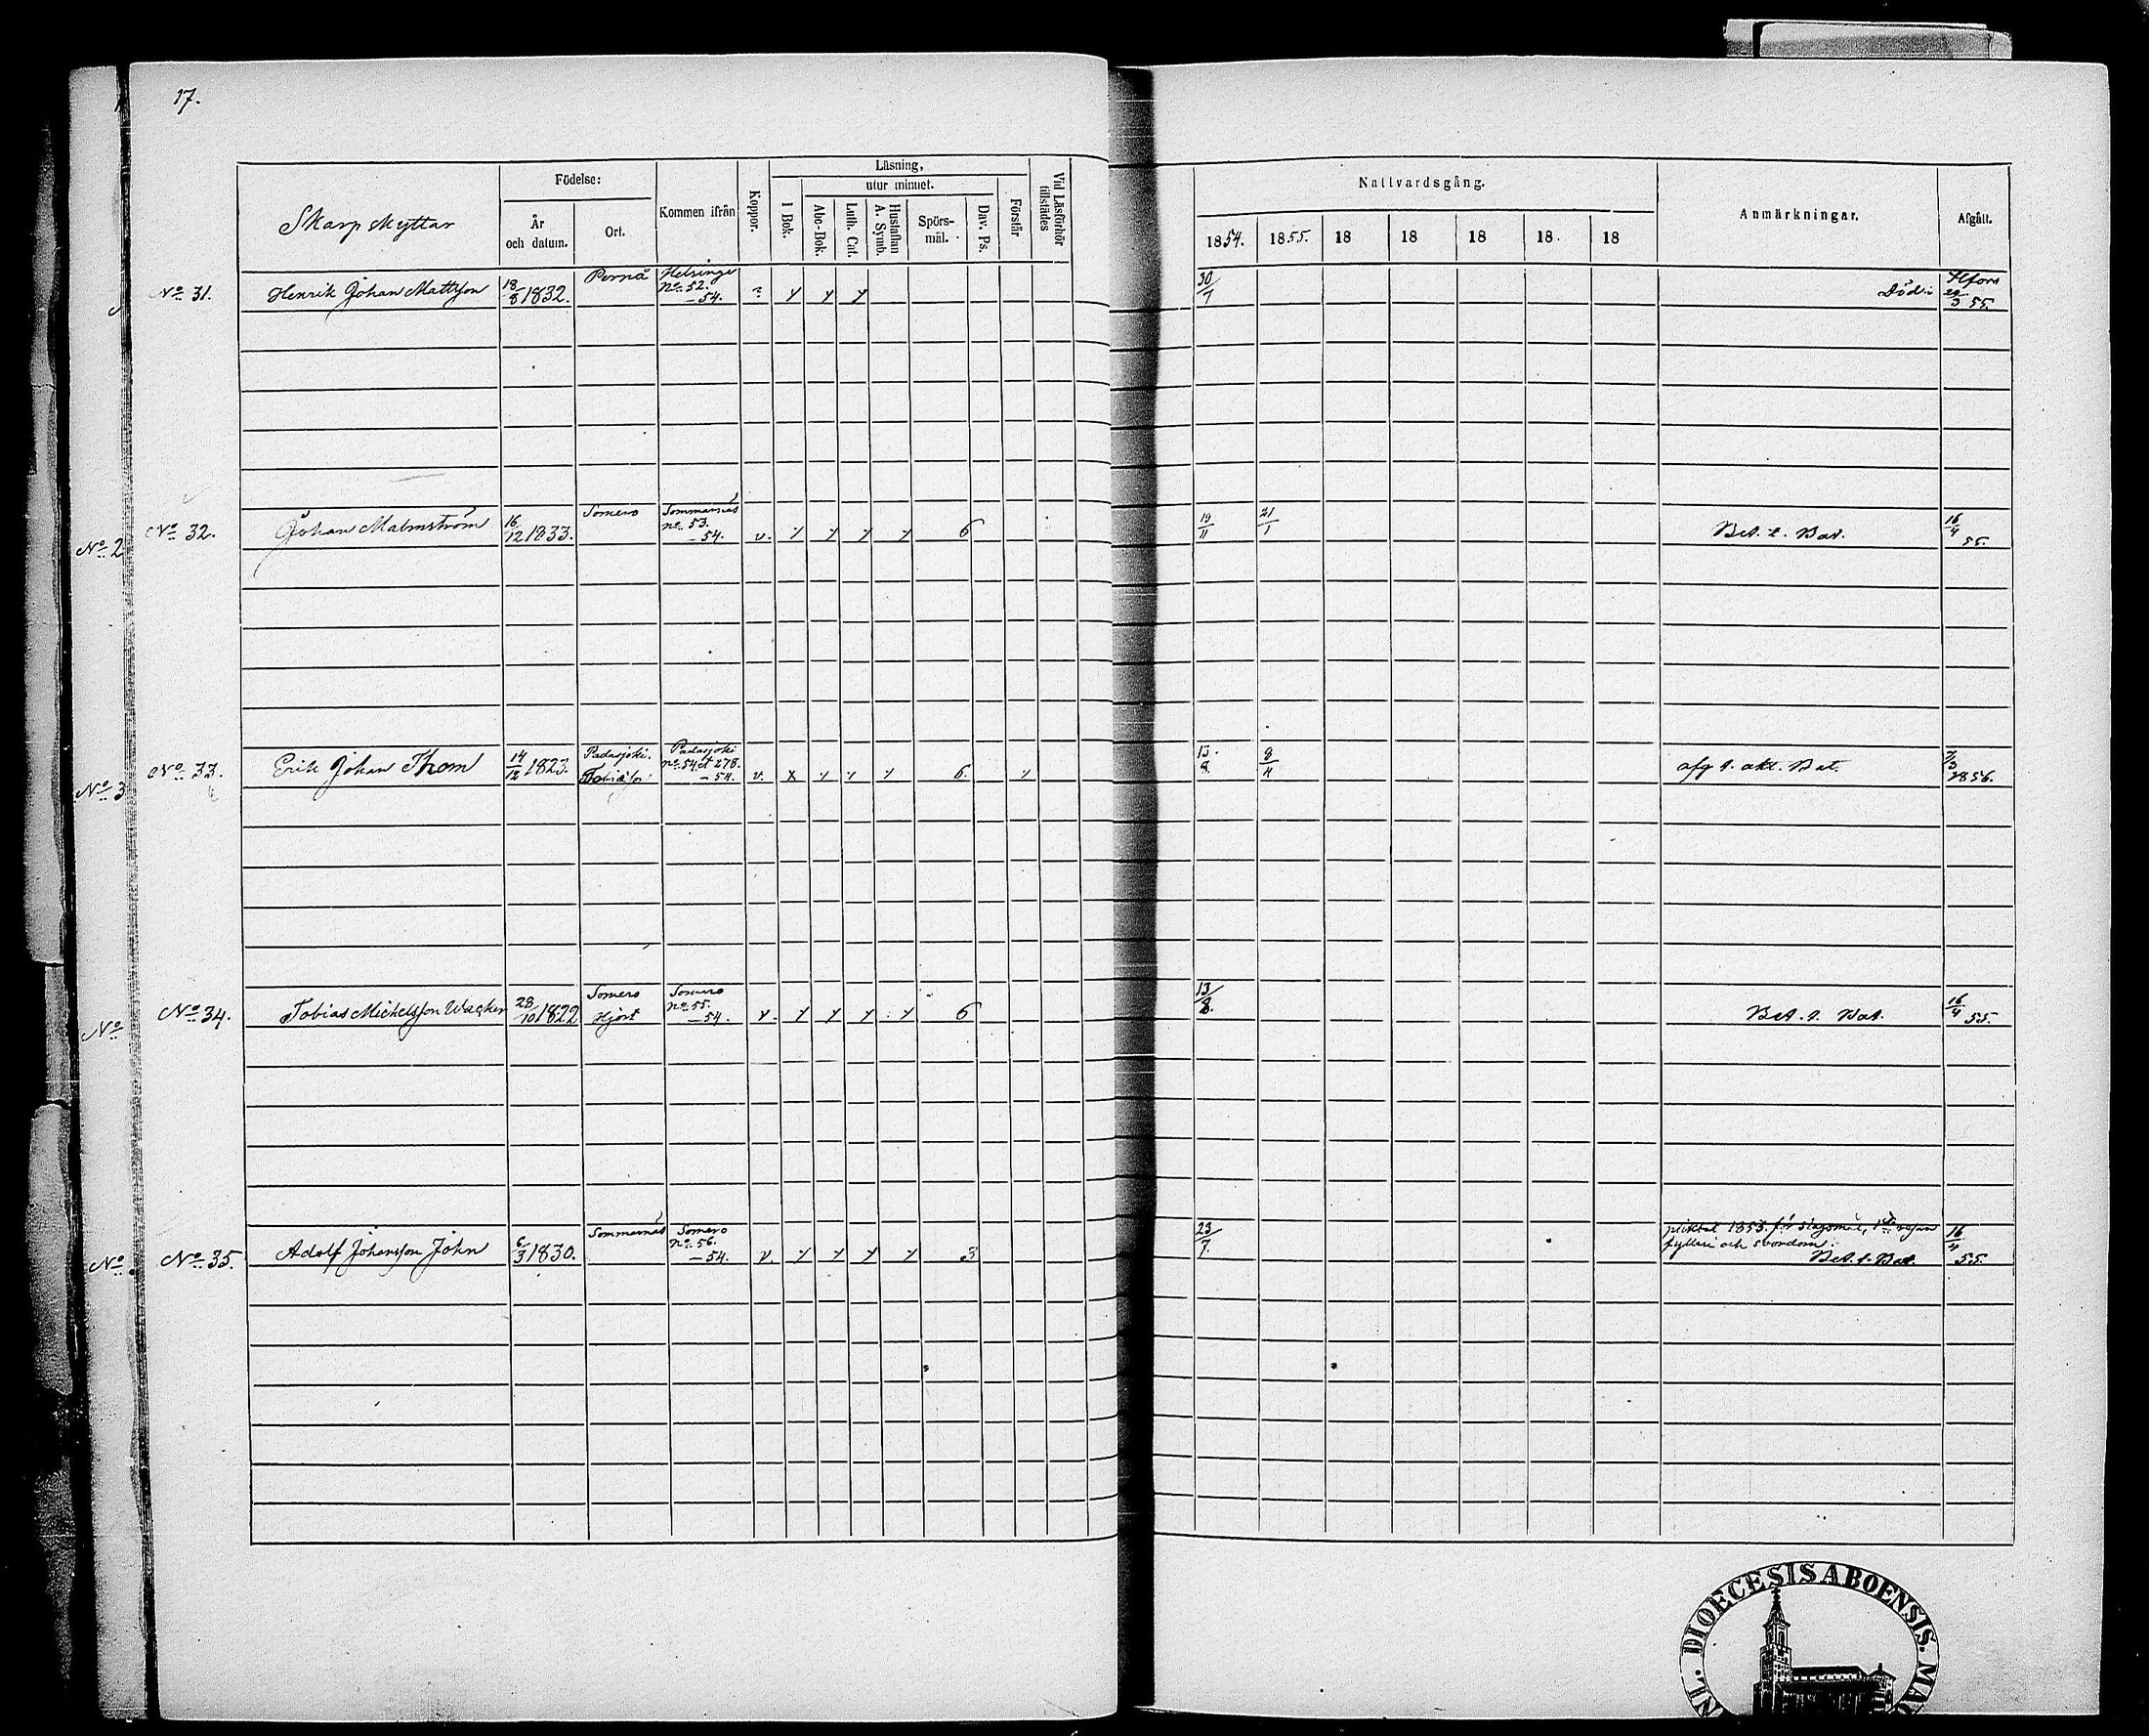 17.
Skarpskyttar
Födelse:
År och datum.
Ort.
Kommen ifrån
Koppor.
Läsning,
utur minnet.
I Bok.
Abc-Bok.
Luth. Cat.
Hustaflan A. Symb.
Spörs-mål.
Dav. Ps.
Förstår
Vid Läsförhör tillstädes
Nattvardsgång.
1854. 1855. 18 18 18 18. 18
Anmärkningar.
Afgått.
No 31. Henrik Johan Mattsson 18/8 1832. Pernå Helsinge
No 52.
-54. y y y 30/7 Död i Hfors
55.
No 2 No 32. Johan Malmström 16/12 1833. Somero Sommarnäs
No 53.
-54. v. y y y y 6 19/11 21/1 Bet. t. Bat. 16/4 55.
No 3 No 33. Erik Johan Thom 14/12 1823. Padasjoki. Padasjoki
No 54 et 278.
-54. v. x y y y 6. y 13/8. 8/4 afg t. akt. Bat. 1856.
No No 34. Tobias Michelsson Wacker 28/10 1822 Somero Somero
Hjort No 55.
-54. v. y y y y 6 13/8. Bet. t. Bat. 16/4 55.
No No 35. Adolf Johansson John 6/3 1830. Sommarnäs Somero
No 56.
-54. v. y y y y 3 23/7. pliktat 1853 för slagsmål,
fylleri och svordom.
Bet. t. Bat. 16/4 55.
DIOECESIS ABOENSIS.